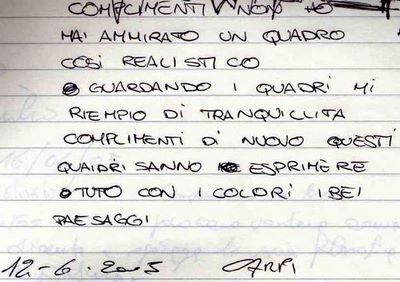 COMPLIMENTI NON HO
MAI AMMIRATO UN QUADRO
COSI REALISTICO
GUARDANDO I QUADRI MI
RIEMPIO DI TRANQUILLITA
COMPLIMENTI DI NUOVO QUESTI
QUAIDRI SANNO ESPRIMERE
TUTO CON I COLORI I BEI
PAESAGGI
12-6.2005 CARPI